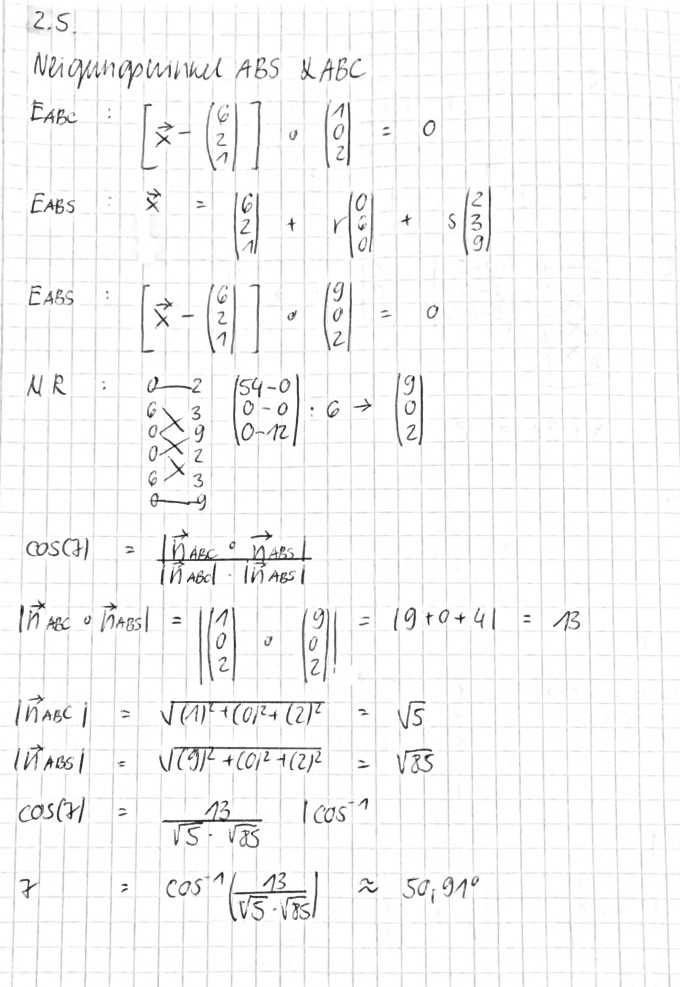 2.5.
Neigungswinkel ABS & ABC
E_ABC : [ x⃗ − (6 2 1) ] ∘ (1 0 2) = 0
E_ABS : x⃗ = (6 2 1) + r (0 6 0) + s (2 3 9)
E_ABS : [ x⃗ − (6 2 1) ] ∘ (9 0 2) = 0
NR : (54-0 0-0 0-12) : 6 → (9 0 2)
0 2
6 3
0 9
0 2
6 3
0 9
cos(γ) = |n⃗_ABC ∘ n⃗_ABS| / |n⃗_ABC| · |n⃗_ABS|
|n⃗_ABC ∘ n⃗_ABS| = |(1 0 2) ∘ (9 0 2)| = |9+0+4| = 13
|n⃗_ABC| = √((1)²+(0)²+(2)²) = √5
|n⃗_ABS| = √((9)²+(0)²+(2)²) = √85
cos(γ) = 13 / √5 · √85 | cos⁻¹
γ = cos⁻¹(13 / √5 · √85) ≈ 50,91°